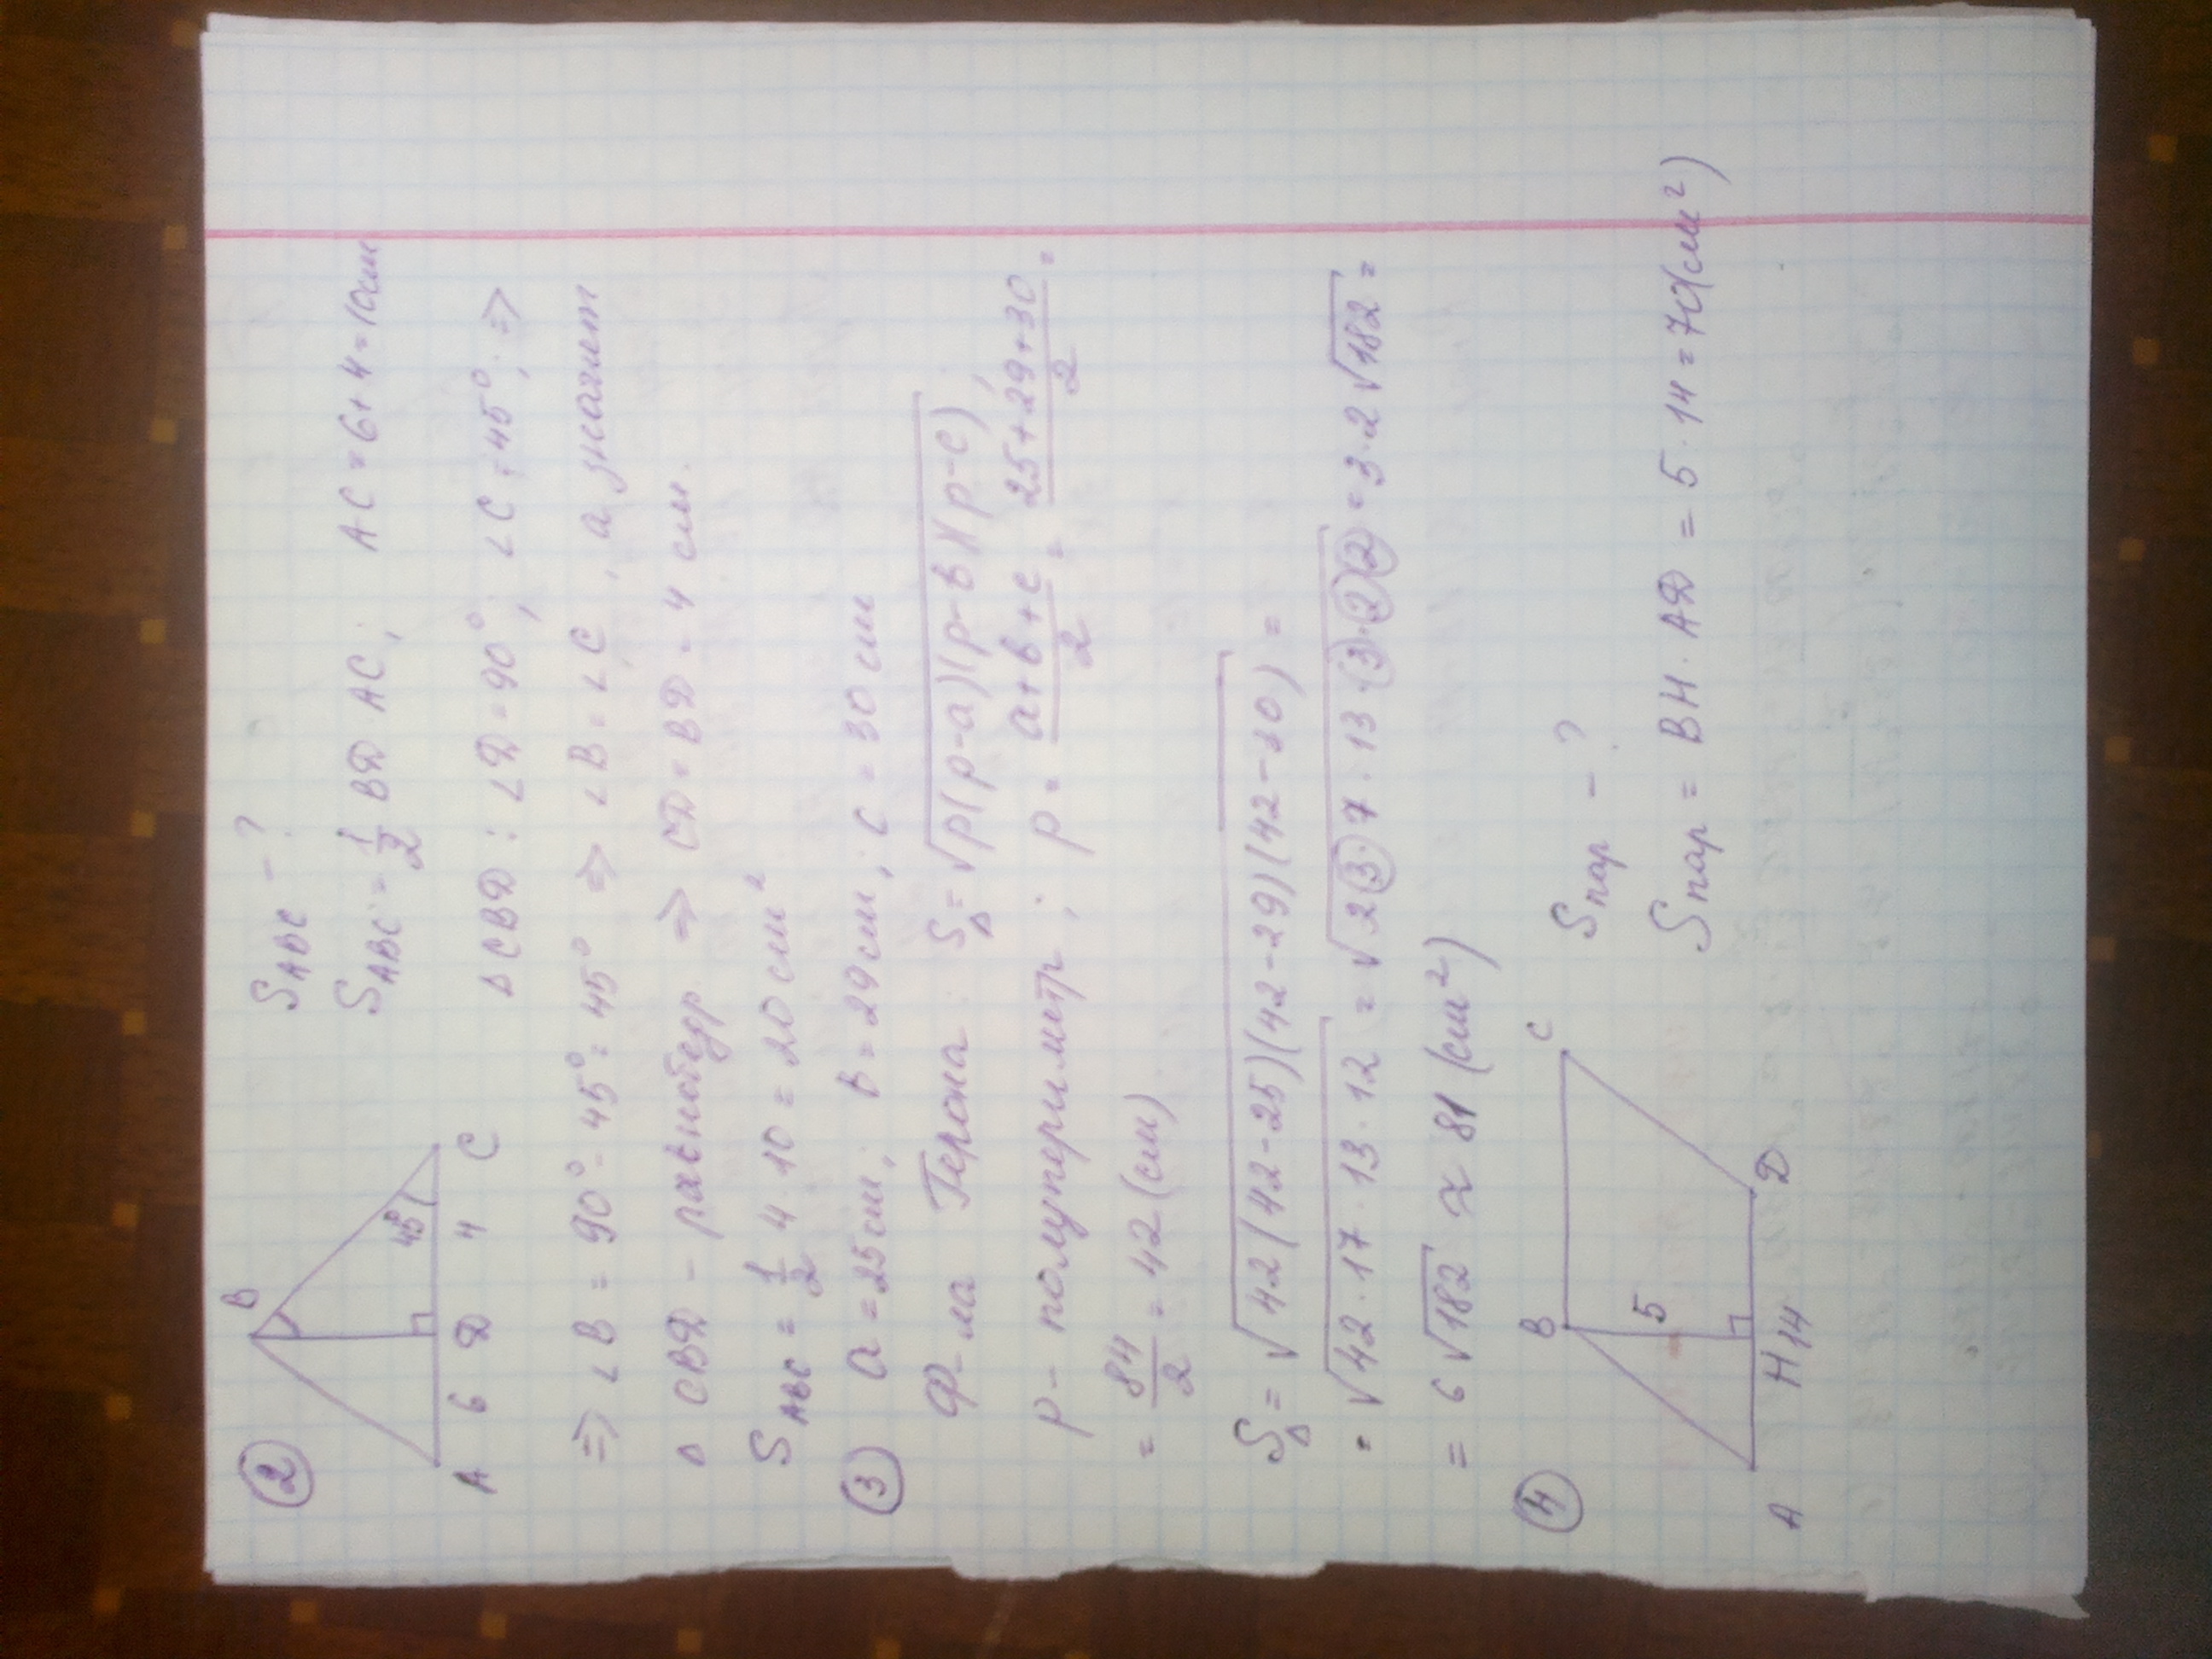 ②
B
45°
A 6 D 4 C
S ABC - ?
S ABC = 1/2 BD AC; AC = 6+4=10см
Δ CBD : ∠D=90°; ∠C=45°; ⇒
⇒ ∠B = 90°-45°=45° ⇒ ∠B=∠C, а значит
Δ CBD - равнобедр. ⇒ CD=BD=4 см.
S ABC = 1/2 4·10=20 см²
③ a=25см; b=29см; c=30см
Ф-ла Герона S Δ = √p(p-a)(p-b)(p-c);
p- полупериметр; p= a+b+c/2 = 25+29+30/2 =
= 84/2 = 42 (см)
S Δ = √42(42-25)(42-29)(42-30) =
= √42·17·13·12 = √2·3·7·13·3·2·2 = 3·2√182 =
= 6√182 ≈ 81 (см²)
④
B C
5
A H 14 D
S пар - ?
S пар = BH·AD = 5·14=70(см²)